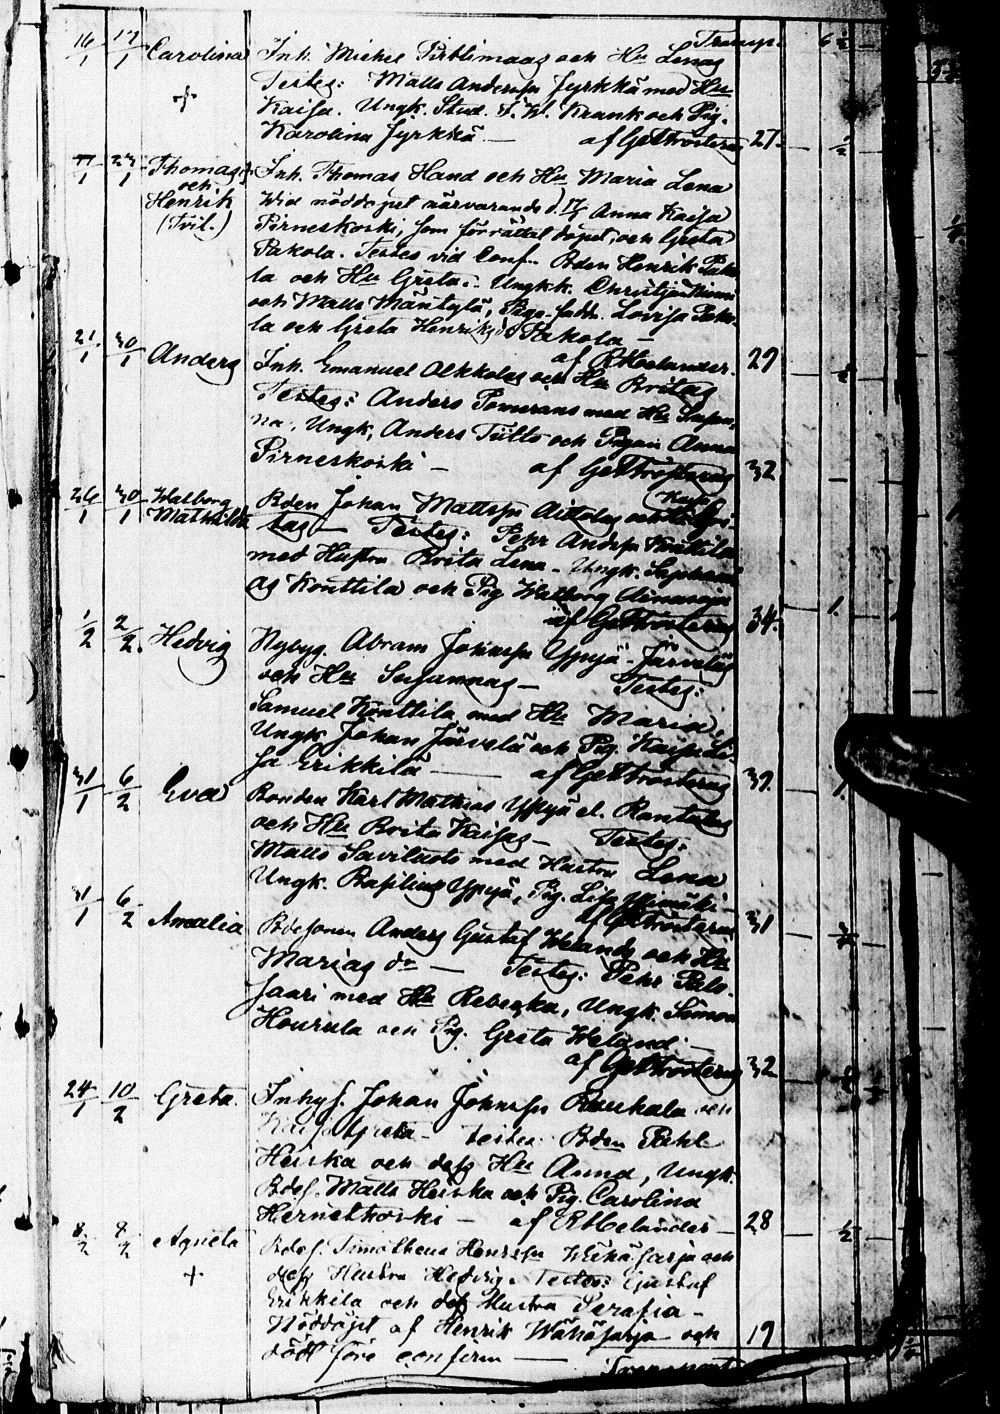 Transp. 6 ½
16/1 17/1 Carolina Inh. Michel Pirttimaas och Hu Lenas
Testes: Matts Andersson Jyrkkä med Hu
Kaisa. Ungk. Stud. F. W. Krank och Pig.
Karolina Jyrkkä — af GHTrosterus 27. ½
17/1 23/1 Thomas och Henrik (Tvil.) Inh. Thomas Hand och Hu Maria Lena
Wid nöddopet närvarande d. 17/1 Anna Kaisa
Pirneskoski, som förrättat dopet, och Greta
Pakola. Testes vid Conf. Bden Henrik Pako-
la och Hu Greta. Ungk. Christian
och Matts Mäntylä, Pigo. Lovisa Pako-
la och Greta Henriksdr Pakola —
af RHelander. 29
21/1 30/1 Anders Inh. Emanuel Alkkolas och Hu Britas
Testes: Anders Pomerans med Hu Susan-
na, Ungk. Anders Tiitto och Pigan Anna
Pirneskoski — af GHTrosterus 32
26/1 30/1 Walborg Mathilda Bden Johan Mattsson Aittolas och Hu
tas — Testes: Pehr Andersson Konttila
med Hustru Brita Lena — Ungk. Zephani-
as Konttila och Pig Walborg
af GHTrosterus 34. 1
1/2 2/2 Hedvig Nybyg. Abram Johansson Yppyä-Järveläs
och Hu Susannas — Testes:
Samuel Konttila med Hu Maria,
Ungk. Johan Järvelä och Pig. Kajsa Li-
sa Erikkilä — af GHTrosterus 39. 1
31/1 6/2 Eva Bonden Karl Mathias Yppyä el. Rantalas
och Hu Brita Kaisas — Testes:
Matts Saviluoto med Hustru Lena
Ungk. Basilius Yppyä, Pig. Lisa Ylimäki
af GHTrosterus 31
31/1 6/2 Amalia Bdesonen Anders Gustaf Welands och Hu
Marias dr — Testes: Pehr Palo-
saari med Hu Rebecka, Ungk. Simon
Hourula och Pig. Greta Weland —
af GHTrosterus 32
24/1 10/2 Greta. Inhys. Johan Johansson Rauhala och
Kaisa Greta — Testes: Bden Pahl
Heiska och dess Hu Anna, Ungk.
Bdes. Matts Heiska och Pig. Carolina
Hernetkoski — af RHelander — 28 ½
8/2 8/2 Agneta Bdes. Timotheus Henrsson Wähäsarja och
dess Hustru Hedvig. Testes: Gustaf
Erikkilä och dess Hustru Serafia —
Nöddöpt af Henrik Wähäsarja och
död före confirm — 19
Transport